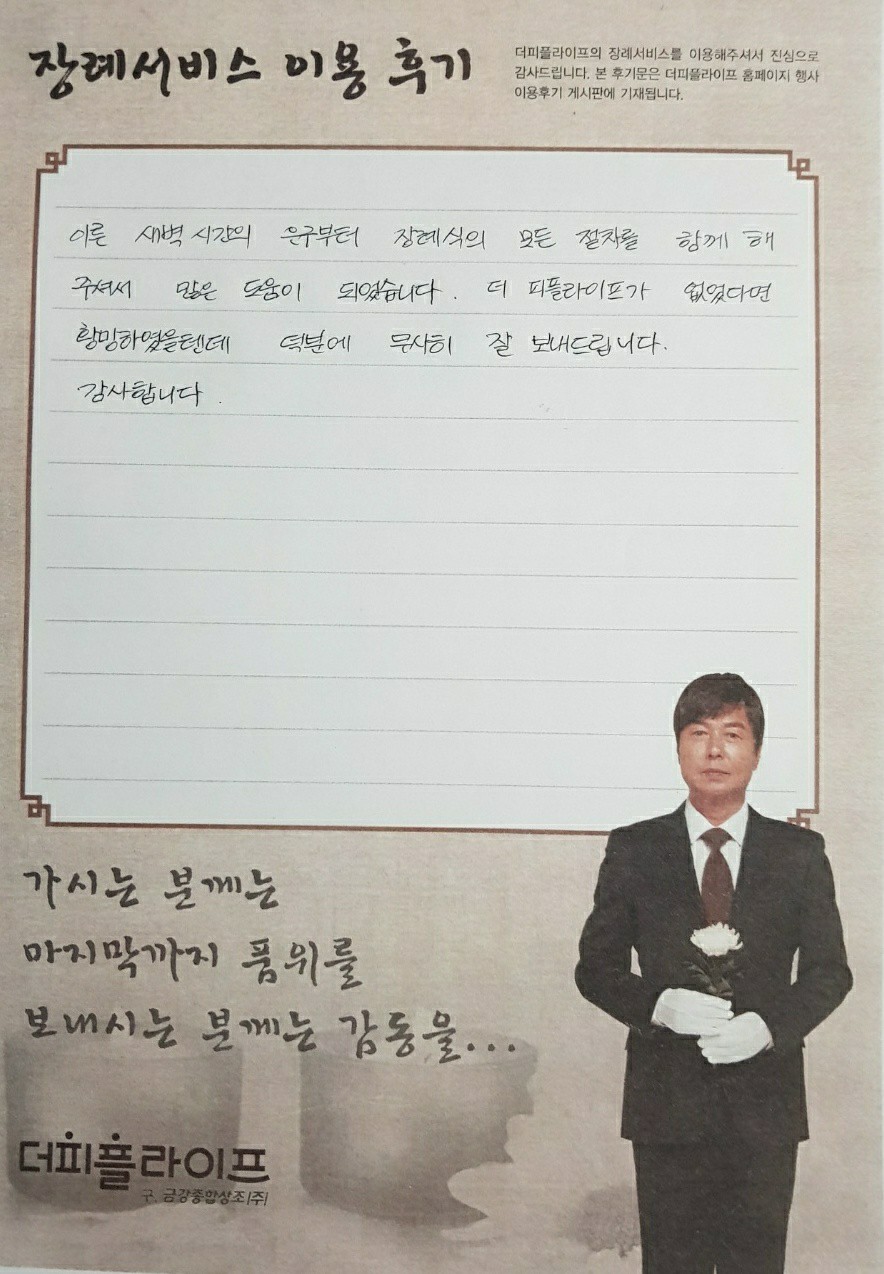 장례서비스 이용 후기
더피플라이프의 장례서비스를 이용해주셔서 진심으로
감사드립니다. 본 후기문은 더피플라이프 홈페이지 행사
이용후기 게시판에 기재됩니다.
이른 새벽 시간의 운구부터 장례식의 모든 절차를 함께 해
주셔서 많은 도움이 되었습니다. 더 피플라이프가 없었다면
황망하였을텐데 덕분에 무사히 잘 보내드립니다.
감사합니다.
가시는 분께는
마지막까지 품위를
보내시는 분께는 감동을...
더피플라이프
구. 금강종합상조(주)